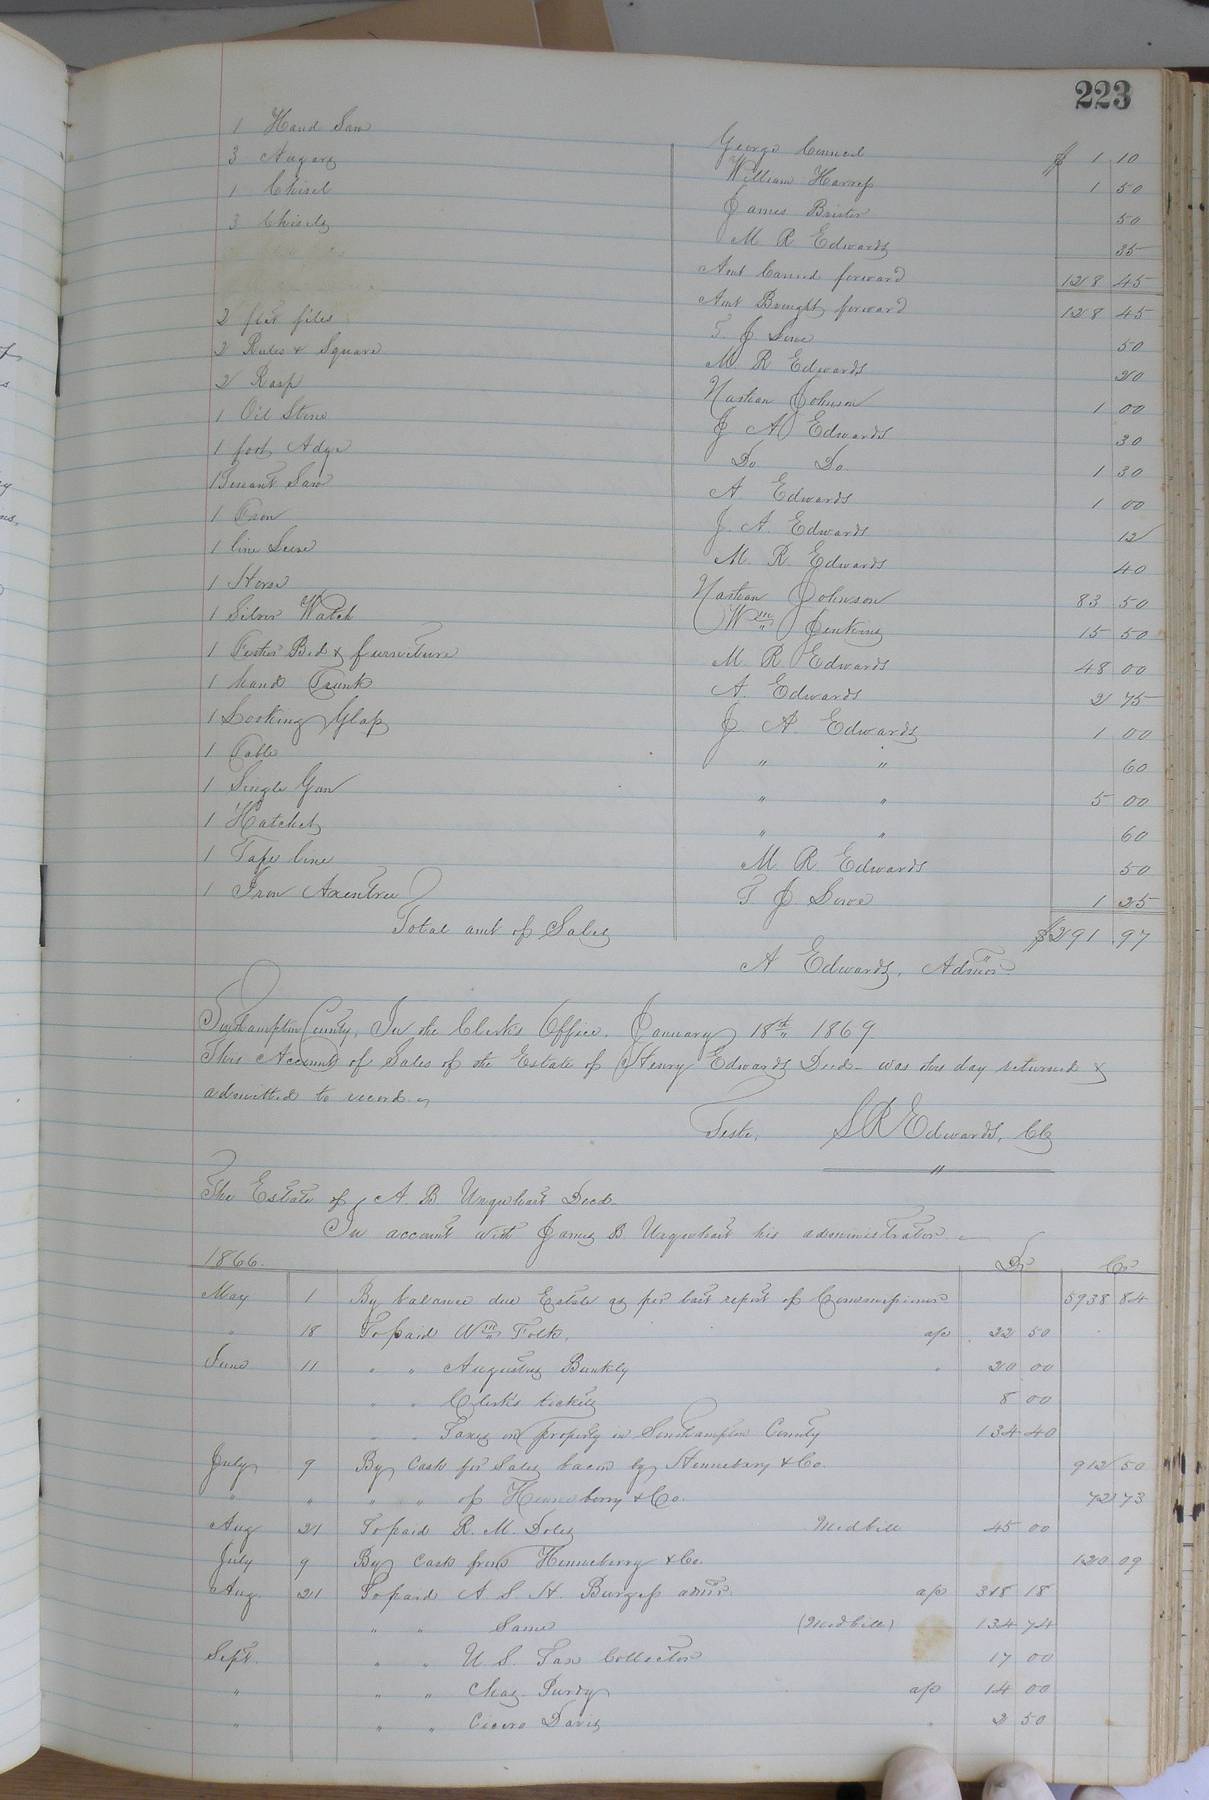 223
1 Hand Saw George Council $ 1 10
3 Augers William Harriss 1 50
1 Chisel James Brister 50
3 Chisels M R Edwards 35
Amt Carried forward 128 45
Amt Brought forward 128 45
2 files T. J 50
2 Rules & Square M. R Edwards 20
2 Rasp Nathan Johnson 1 00
1 Oil Stone J A Edwards 30
1 foot Adze Do Do 1 30
1 Tenant Saw A Edwards 1 00
1 J. A. Edwards 12
1 line M. R. Edwards 40
1 Horse Nathan Johnson 83 50
1 Silver Watch Wm Jenkins 15 50
1 Bed & furniture M R Edwards 48 00
1 hand Trunk A. Edwards 2 75
1 Looking Glass J. A. Edwards 1 00
1 Table " " 60
1 Single Gun " " 5 00
1 Hatchet " " 60
1 Tape line M. R. Edwards 50
1 Iron Axentree T J 1 25
Total amt of Sales $291 97
A Edwards, Admor.
Southampton County, In the Clerk's Office, January 18th 1869.
This Account of Sales of the Estate of Henry Edwards Decd- was this day returned &
admitted to record.
Teste, S R Edwards, CC
"
The Estate of A. B Urquhart Decd-
In account with James B Urquhart his administrator
1866. Dr Cr
May 1 By balance due Estate as per last report of Commissioner 5938 84
" 18 To paid Wm Folk, a/c 22 50
June 11 " " Augustus Bunkly " 20 00
" " Clerk's tickets 8 00
" " Taxes on property in Southampton County 134 40
July 9 By Cash for Sales bacon by Henneberry & Co. 912 50
" " " " of Henneberry & Co. 72 73
Aug 21 To paid R. M. Doles Med bill 45 00
July 9 By Cash from Henneberry & Co. 120 09
Aug. 21 To paid A S H. Burgess admr. a/c 318 18
" " Same (Med bill) 134 74
Sept. " " U S. Tax Collector 17 00
" " " Chas. Purdy a/c 14 00
" " " Cicero Davis " 2 50